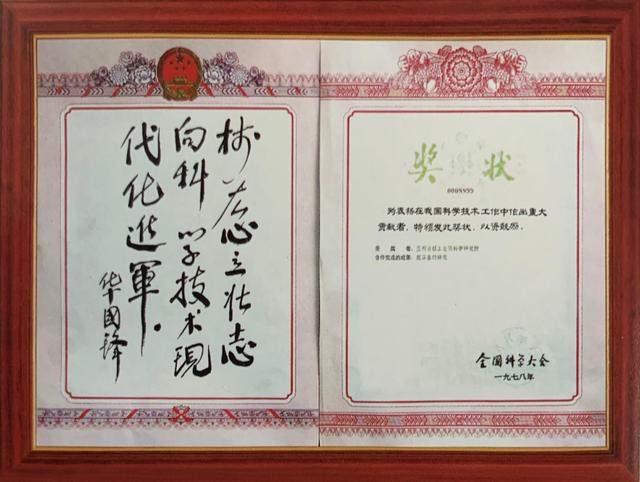 树雄心立壮志
向科学技术現
代化進軍。
华國锋
奖状
为表扬在我国科学技术工作中作出重大
贡献者，特颁发此奖状，以资鼓励。
合作完成的成果：
全国科学大会
一九七八年